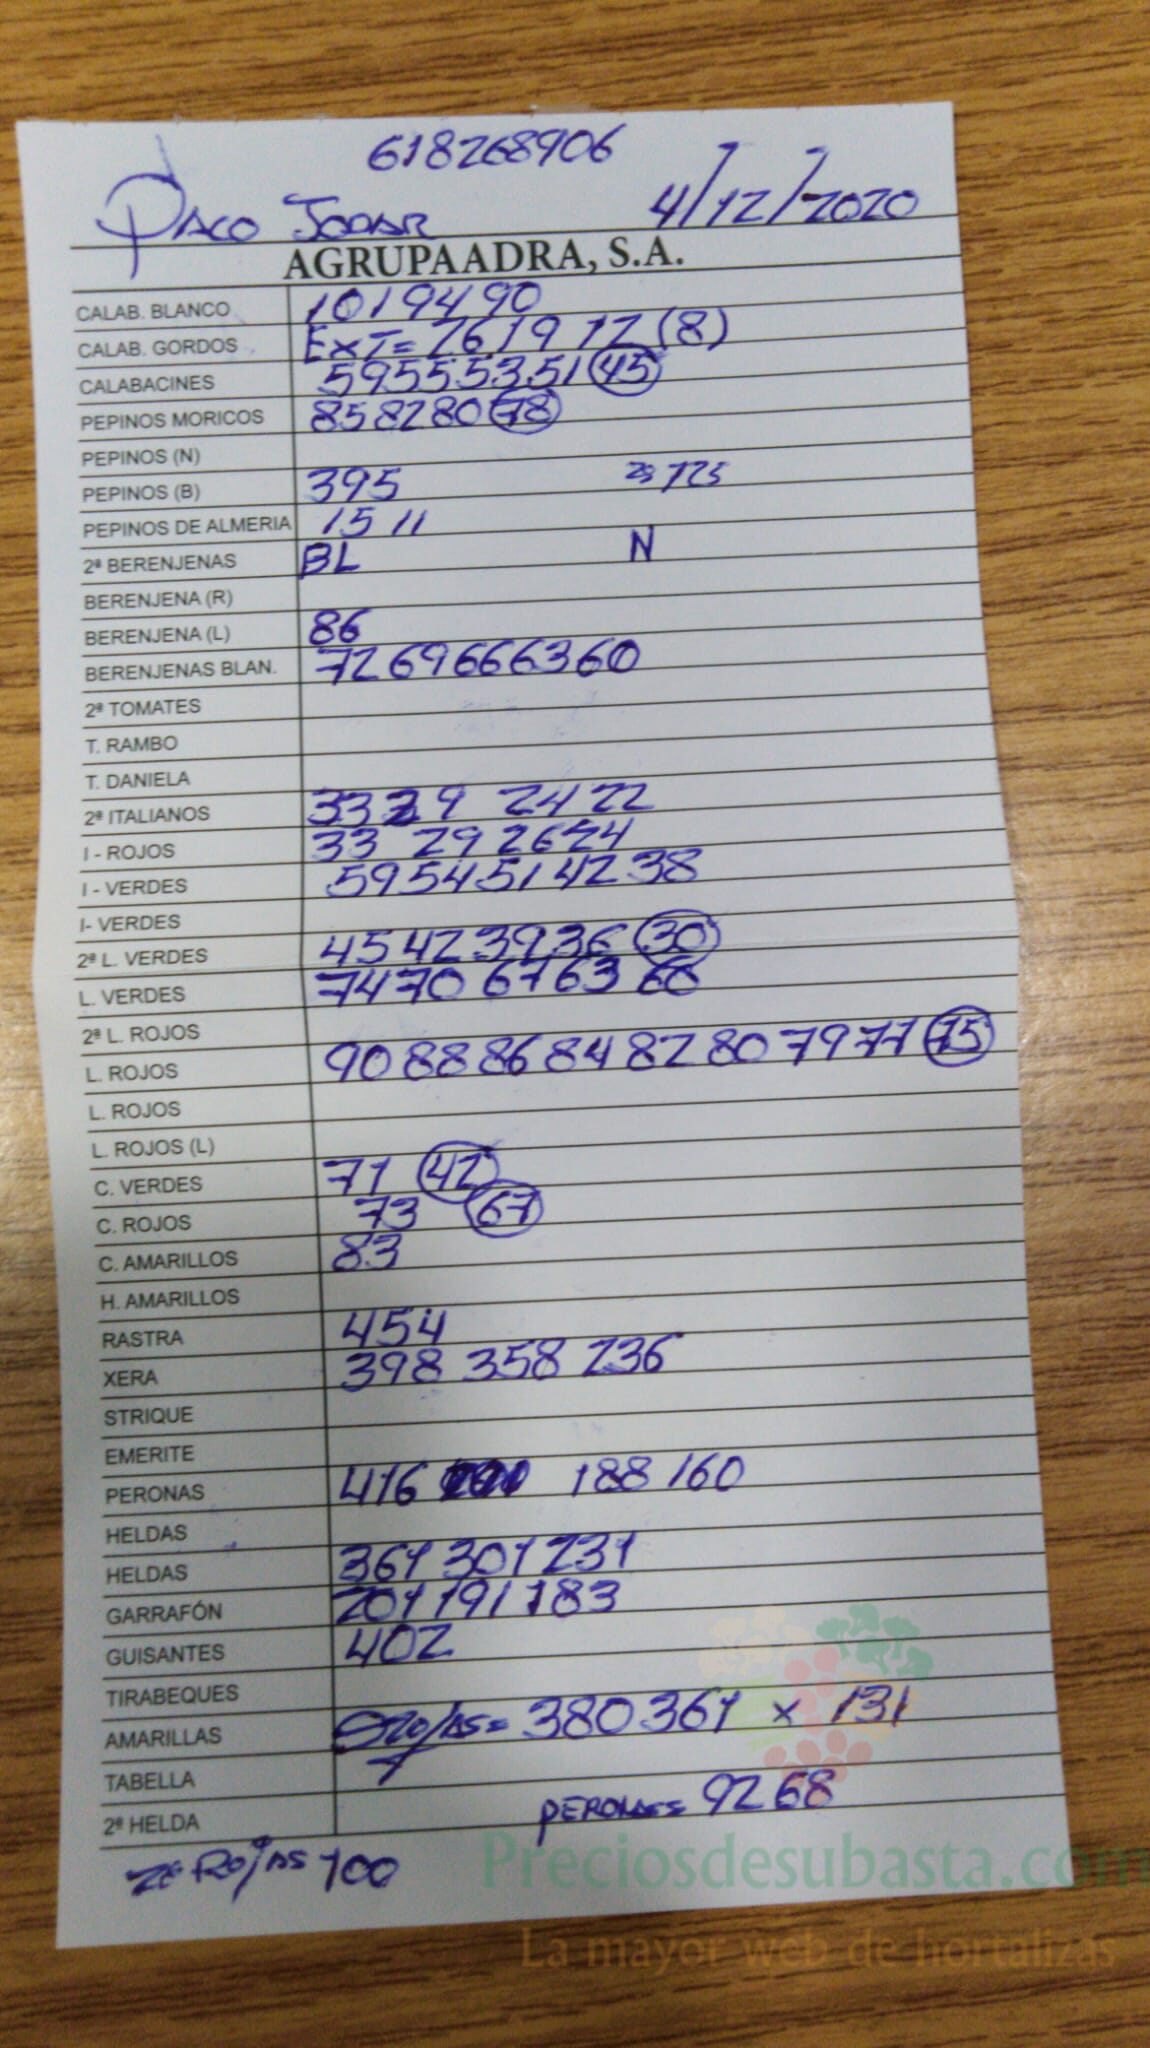 618268906
PACO JODAR 4/12/2020
AGRUPAADRA, S.A.
CALAB. BLANCO 101 94 90
CALAB. GORDOS EXT= 26 19 12 (8)
CALABACINES 59 55 53 51 45
PEPINOS MORICOS 85 82 80 78
PEPINOS (N)
PEPINOS (B) 395 125
PEPINOS DE ALMERIA 15 11
2ª BERENJENAS BL N
BERENJENA (R)
BERENJENA (L) 86
BERENJENAS BLAN. 72 69 66 63 60
2ª TOMATES
T. RAMBO
T. DANIELA
2ª ITALIANOS 33 29 24 22
I - ROJOS 33 29 26 24
I - VERDES 59 54 51 42 38
I- VERDES
2ª L. VERDES 45 42 39 36 30
L. VERDES 74 70 67 63 60
2ª L. ROJOS
L. ROJOS 90 88 86 84 82 80 79 77 75
L. ROJOS
L. ROJOS (L)
C. VERDES 71 42
C. ROJOS 73 67
C. AMARILLOS 83
H. AMARILLOS
RASTRA 454
XERA 398 358 236
STRIQUE
EMERITE
PERONAS 416 188 160
HELDAS
HELDAS 361 301 231
GARRAFÓN 201 191 183
GUISANTES 402
TIRABEQUES
AMARILLAS ROJAS= 380 361 x 131
TABELLA
2ª HELDA PERONAS= 92 68
2ª ROJAS 100
Preciosdesubasta.com
La mayor web de hortalizas